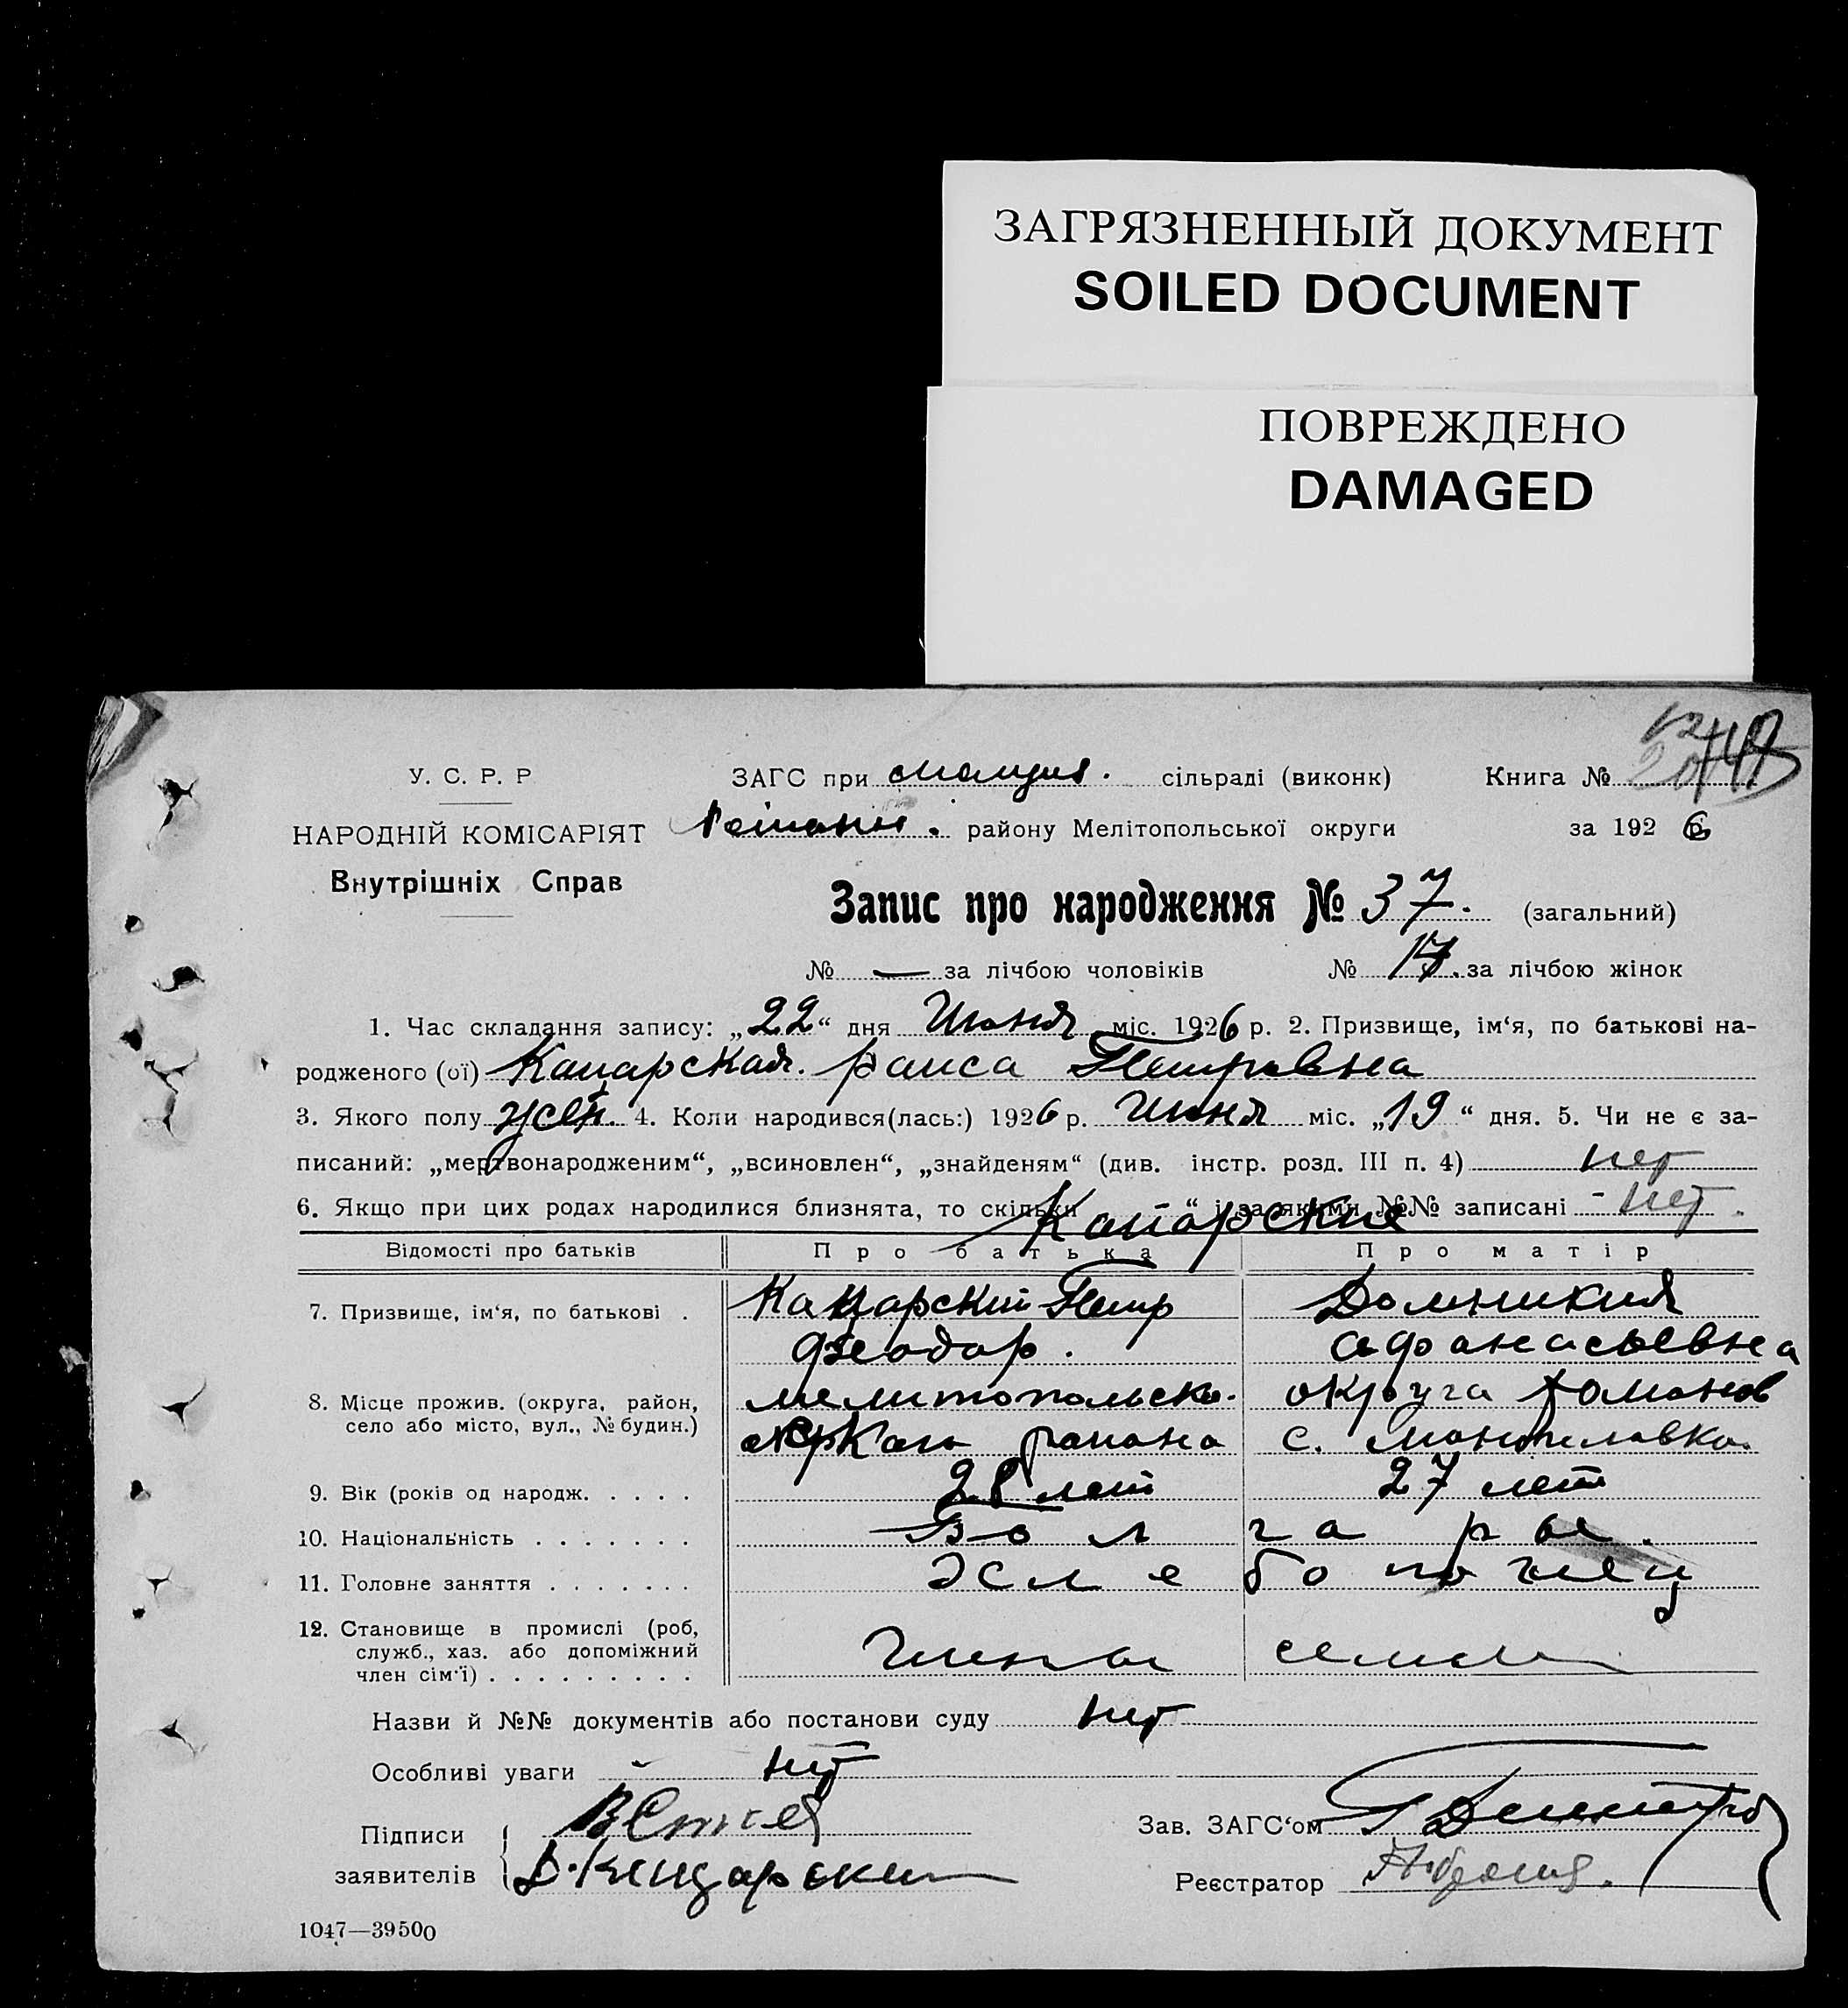 ЗАГРЯЗНЕННЫЙ ДОКУМЕНТ
SOILED DOCUMENT
ПОВРЕЖДЕНО
DAMAGED
У. С. Р. Р
ЗАГС при сільраді (виконк) Книга №
НАРОДНІЙ КОМІСАРІЯТ
району Мелітопольської округи за 1926
Внутрішніх Справ
Запис про народження № 37. (загальний)
№ — за лічбою чоловіків № 17. за лічбою жінок
1. Час складання запису: „22“ дня Июня міс. 1926 р. 2. Призвище, ім‘я, по батькові на-
родженого (ої) Кацарская. раиса Петровна
3. Якого полу жен. 4. Коли народився(лась:) 1926 р. Июня міс. „19“ дня. 5. Чи не є за-
писаний: „мертвонародженим“, „всиновлен“, „знайденям“ (див. інстр. розд. III п. 4) нет
6. Якщо при цих родах народилися близнята, то скільки “ і за якими №№ записані - нет.
Кацарские
Відомості про батьків Про батька Про матір
7. Призвище, ім‘я, по батькові . Кацарский Петр Домникия
Феодор. Афанасьевна
8. Місце прожив. (округа, район, мелитопольско. округа Романов
село або місто, вул., № будин.) района с.
9. Вік (років од народж. . . . . 28 лет 27 лет
10. Національність . . . . . . . Болгары.
11. Головне заняття . . . . . . .
12. Становище в промислі (роб,
служб., хаз. або допоміжний
член сім‘ї) . . . . . . . . . члены семьи
Назви й №№ документів або постанови суду нет
Особливі уваги нет
Підписи
Зав. ЗАГС‘ом
заявителів Д. Кацарский
Реєстратор
1047—39500